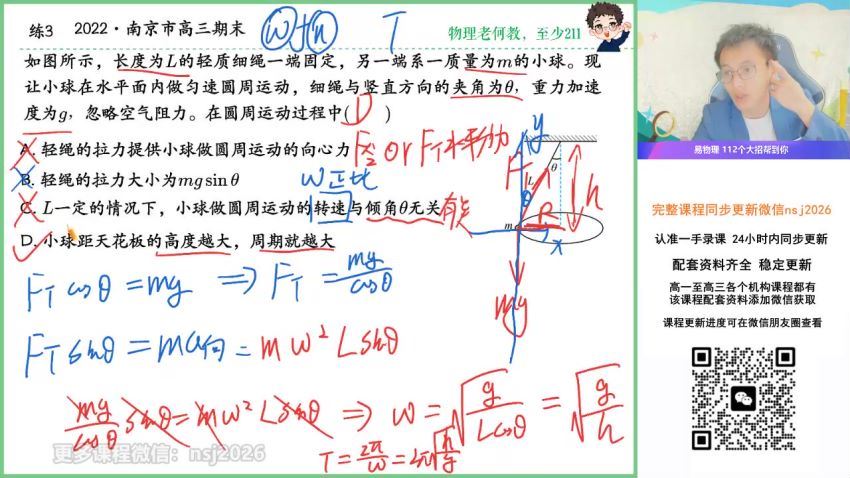 练3 2022·南京市高三期末 ω与n T 物理老何教，至少211
如图所示，长度为L的轻质细绳一端固定，另一端系一质量为m的小球。现
让小球在水平面内做匀速圆周运动，细绳与竖直方向的夹角为θ，重力加速
度为g，忽略空气阻力。在圆周运动过程中( D )
A. 轻绳的拉力提供小球做圆周运动的向心力 F合 or FT水平分力
B. 轻绳的拉力大小为mgsinθ ω正比
C. L一定的情况下，小球做圆周运动的转速与倾角θ无关 有关
D. 小球距天花板的高度越大，周期就越大
y
FT L θ h
θ
m R
x
mg
FT cosθ = mg ⇒ FT = mg/cosθ
FT sinθ = ma向 = mω² L sinθ
mg/cosθ sinθ = mω² L sinθ ⇒ ω = √(g/Lcosθ) = √(g/h)
T = 2π/ω = 2π√(h/g)
更多课程微信：nsj2026
易物理 112个大招帮到你
完整课程同步更新微信nsj2026
认准一手录课 24小时内同步更新
配套资料齐全 稳定更新
高一至高三各个机构课程都有
该课程配套资料添加微信获取
课程更新进度可在微信朋友圈查看